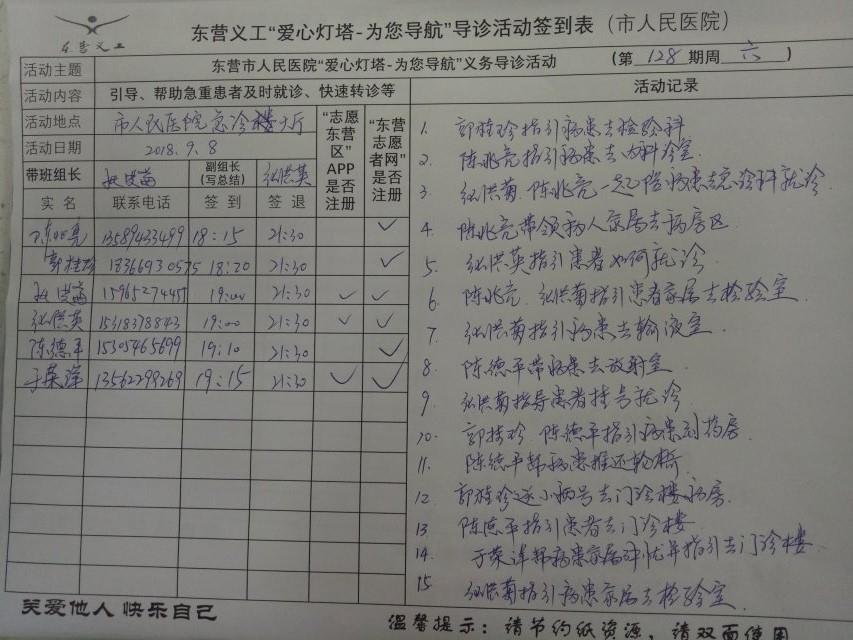 东营义工“爱心灯塔-为您导航”导诊活动签到表（市人民医院）
东营义工
活动主题 东营市人民医院“爱心灯塔-为您导航”义务导诊活动 （第 128 期周 六 ）
活动内容 引导、帮助急重患者及时就诊、快速转诊等 活动记录
活动地点 市人民医院急诊楼大厅 “志愿东营区”APP是否注册 “东营志愿者网”是否注册
活动日期 2018.9.8
带班组长 副组长（写总结） 张洪英
实名 联系电话 签到 签退
陈兆亮 13589433499 18:15 21:30 ✓
郭桂珍 18366930575 18:20 21:30 ✓
1596527445 19:00 21:30 ✓ ✓
张洪英 15318378843 19:00 21:30 ✓ ✓
陈德平 15305465699 19:10 21:30 ✓
于荣萍 13562299269 19:15 21:30 ✓ ✓
1. 郭桂珍指引病患去检验科
2. 陈兆亮指引病患去内科诊室.
3. 张洪菊.陈兆亮一起陪病患去急诊科就诊.
4. 陈兆亮带领病人家属去病房区
5. 张洪英指引患者如何就诊
6. 陈兆亮.张洪菊指引患者家属去检验室.
7. 张洪菊指引病患去输液室.
8. 陈德平带病患去放射室.
9. 张洪菊指导患者挂号就诊
10. 郭桂珍 陈德平指引病患到药房.
11. 陈德平帮病患推还轮椅
12. 郭桂珍送小病号去门诊楼病房.
13. 陈德平指引患者去门诊楼
14. 于荣萍帮病患家属 指引去门诊楼.
15. 张洪菊指引病患家属去检验室.
关爱他人 快乐自己
温馨提示：请节约纸资源，请双面使用